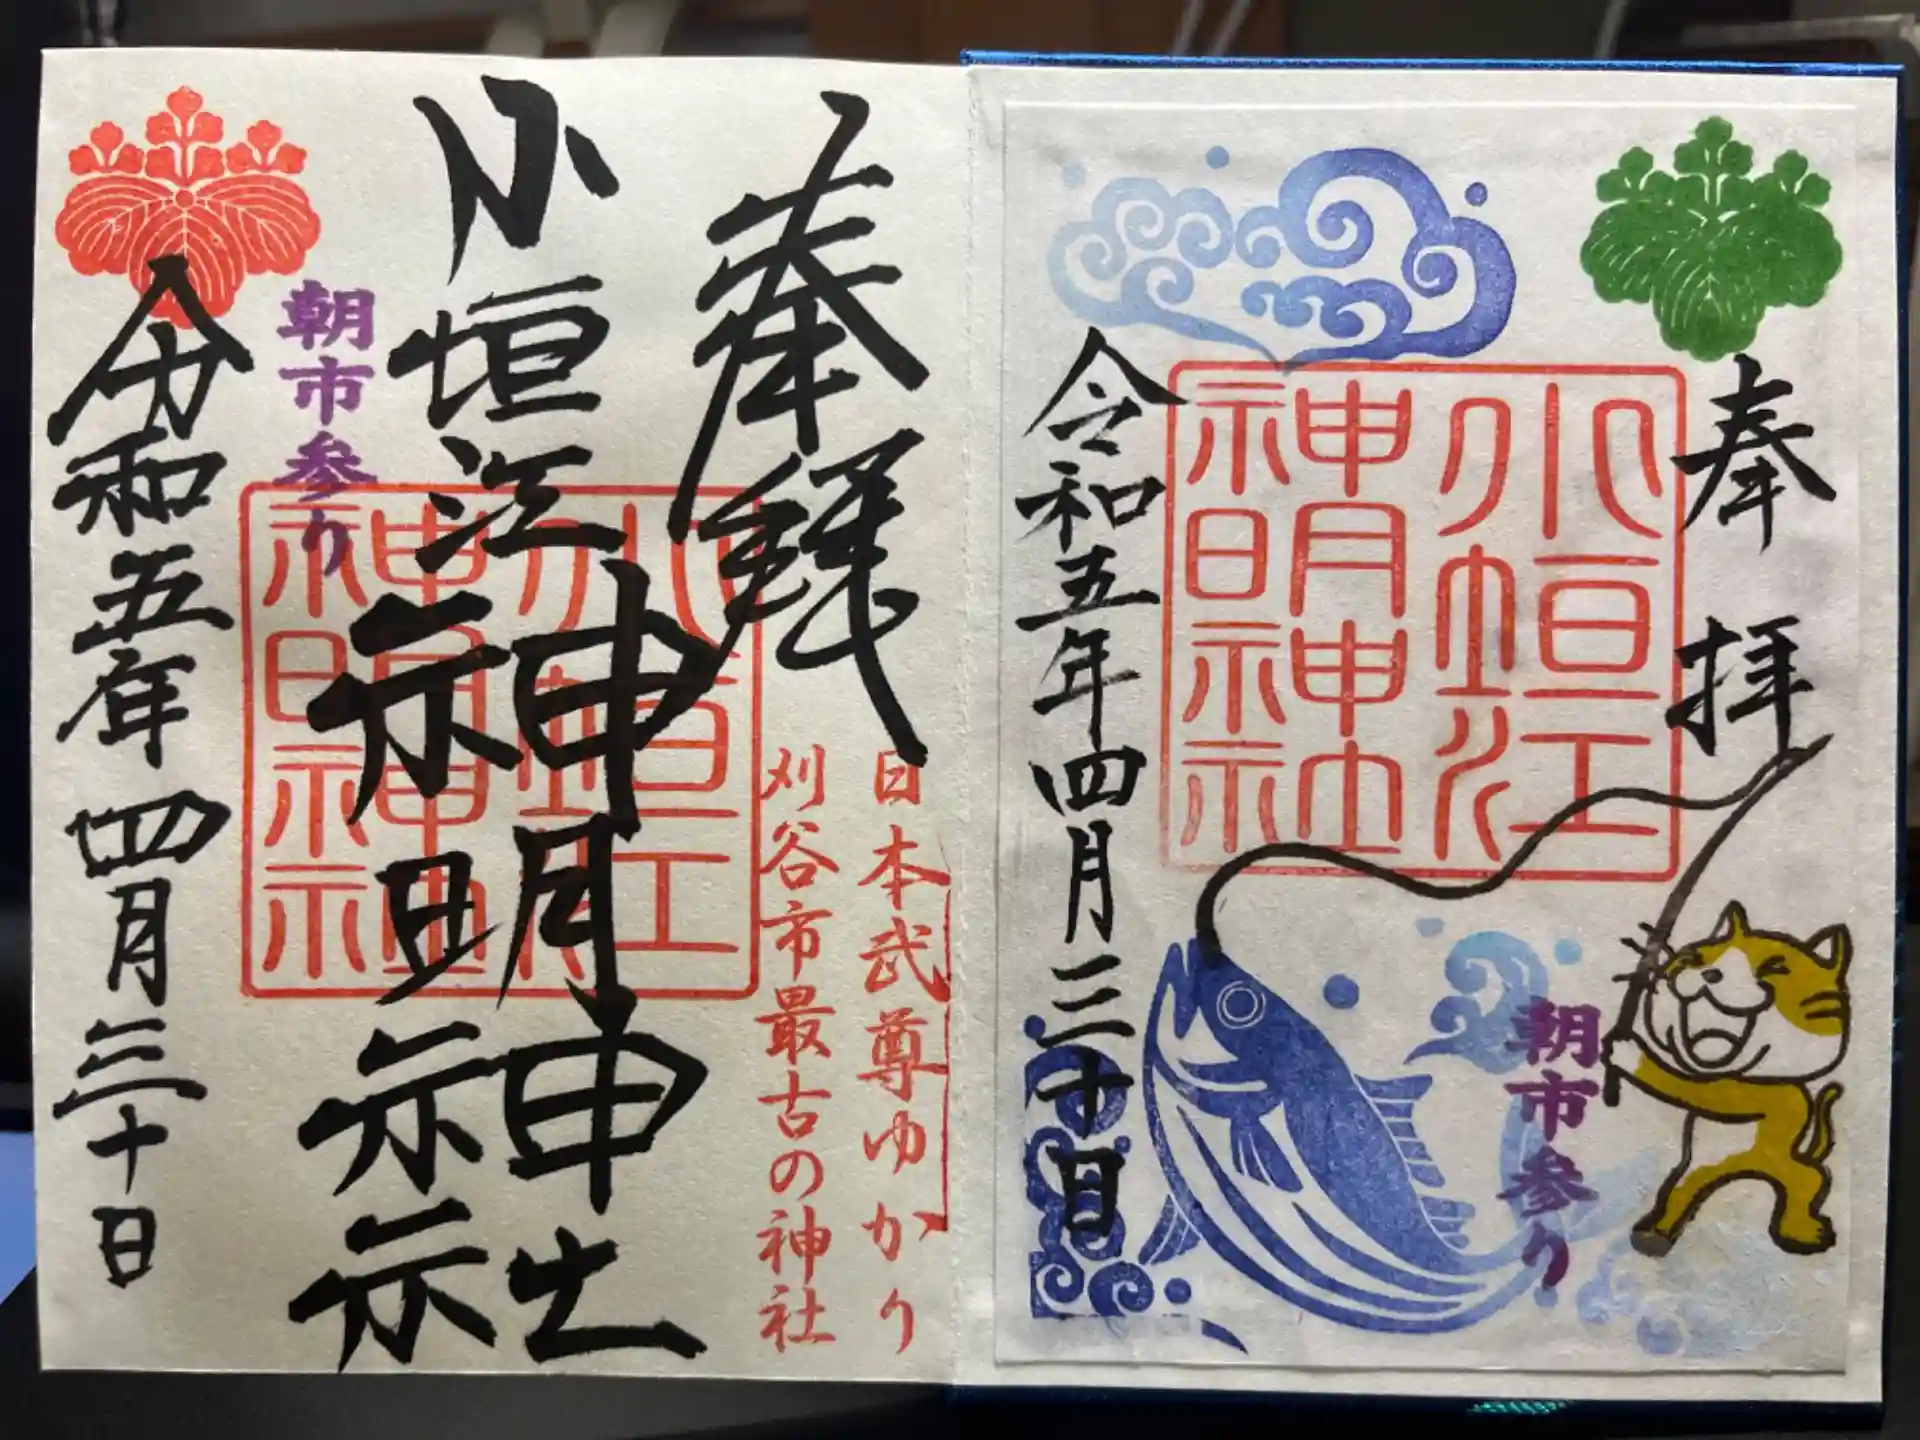 奉拝
小垣江
神明神社
朝市参り
令和五年四月三十日
奉拝
日本武尊ゆかり
刈谷市最古の神社
小垣江
神明神社
小垣江
神明神社
朝市参り
令和五年四月三十日